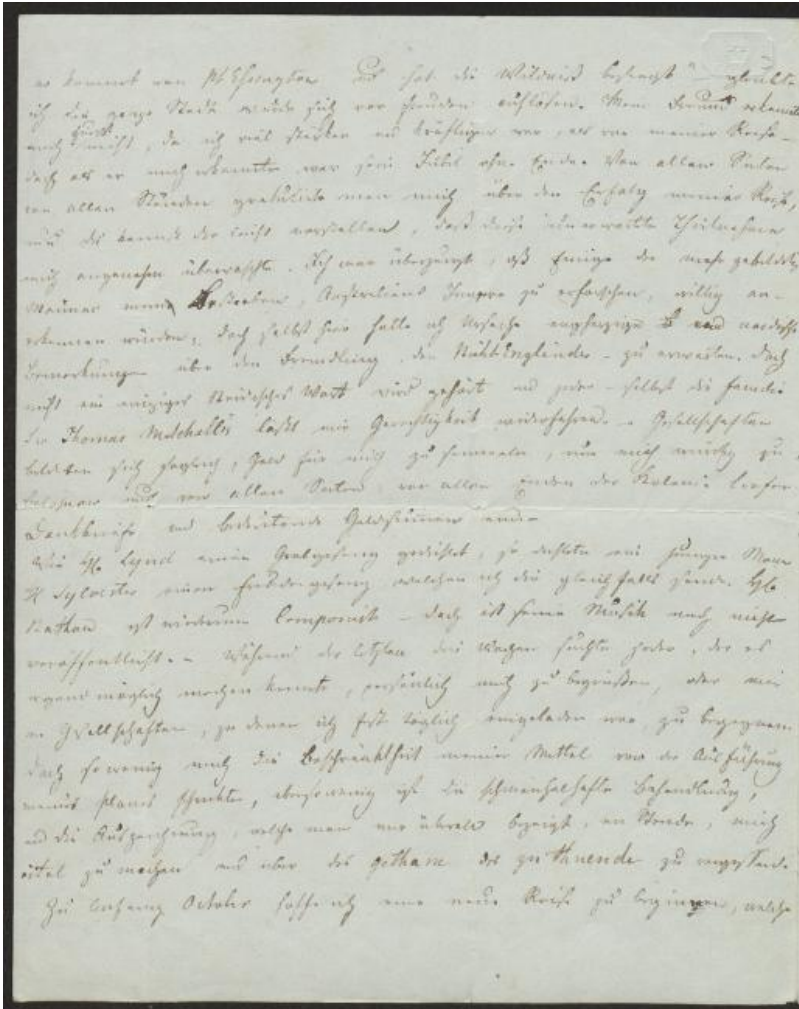 er kommt von Pt Essington und hat die Wildniß besiegt" glaubte
ich die ganze Stadt würde sich vor Freuden auflösen. Mein Freund erkannte
mich zuerst nicht, da ich viel stärker und kräftiger war, als vor meiner Reise –
doch als er mich erkannte war sein Jubel ohne Ende. Von allen Seiten
von allen Ständen gratulirte man mich über den Erfolg meiner Reise,
und du kannst dir leicht vorstellen, daß diese unerwartete Theilnahme
mich angenehm überraschte. Ich war überzeugt, daß Einige der mehr gebildeten
Männer mein Bestreben, Australiens Innere zu erforschen, willig an-
erkennen würden, doch selbst hier hatte ich Ursache engherzige und neidische
Bemerkungen über den Fremdling, den Nichtengländer – zu erwarten. Doch
nicht ein einziges neidisches Wort wird gehört und jeder – selbst die Familie
Sir Thomas Mitchell's läßt mir Gerechtigkeit widerfahren. – Gesellschaften
bildeten sich sogleich, Geld für mich zu sammeln, um mich würdig zu
belohnen und von allen Seiten, von allen Enden der Kolonie liefen
Dankbriefe und bedeutende Geldsummen ein. –
Wie Hr. Lynd einen Grabgesang gedichtet, so dichtete ein junger Mann
H Sylvester einen Freudengesang welchen ich dir gleichfalls sende. Hr
Nathan ist wiederum Componist – doch ist seine Musik noch nicht
veröffentlicht. – Während der letzten drei Wochen suchte jeder, der es
irgend möglich machen konnte, persönlich mich zu begrüßen, oder mir
in Gesellschaften, zu denen ich fast täglich eingeladen war, zu begegnen.
Doch so wenig mich die Beschränktheit meiner Mittel von der Ausführung
meines Planes schreckte, ebensowenig ist die schmeichelhafte Behandlung,
und die Auszeichnung, welche man mir überall bezeigt, im Stande, mich
eitel zu machen und über das gethane das zu thuende zu vergessen.
Zu Anfang October hoffe ich eine neue Reise zu beginnen, welche